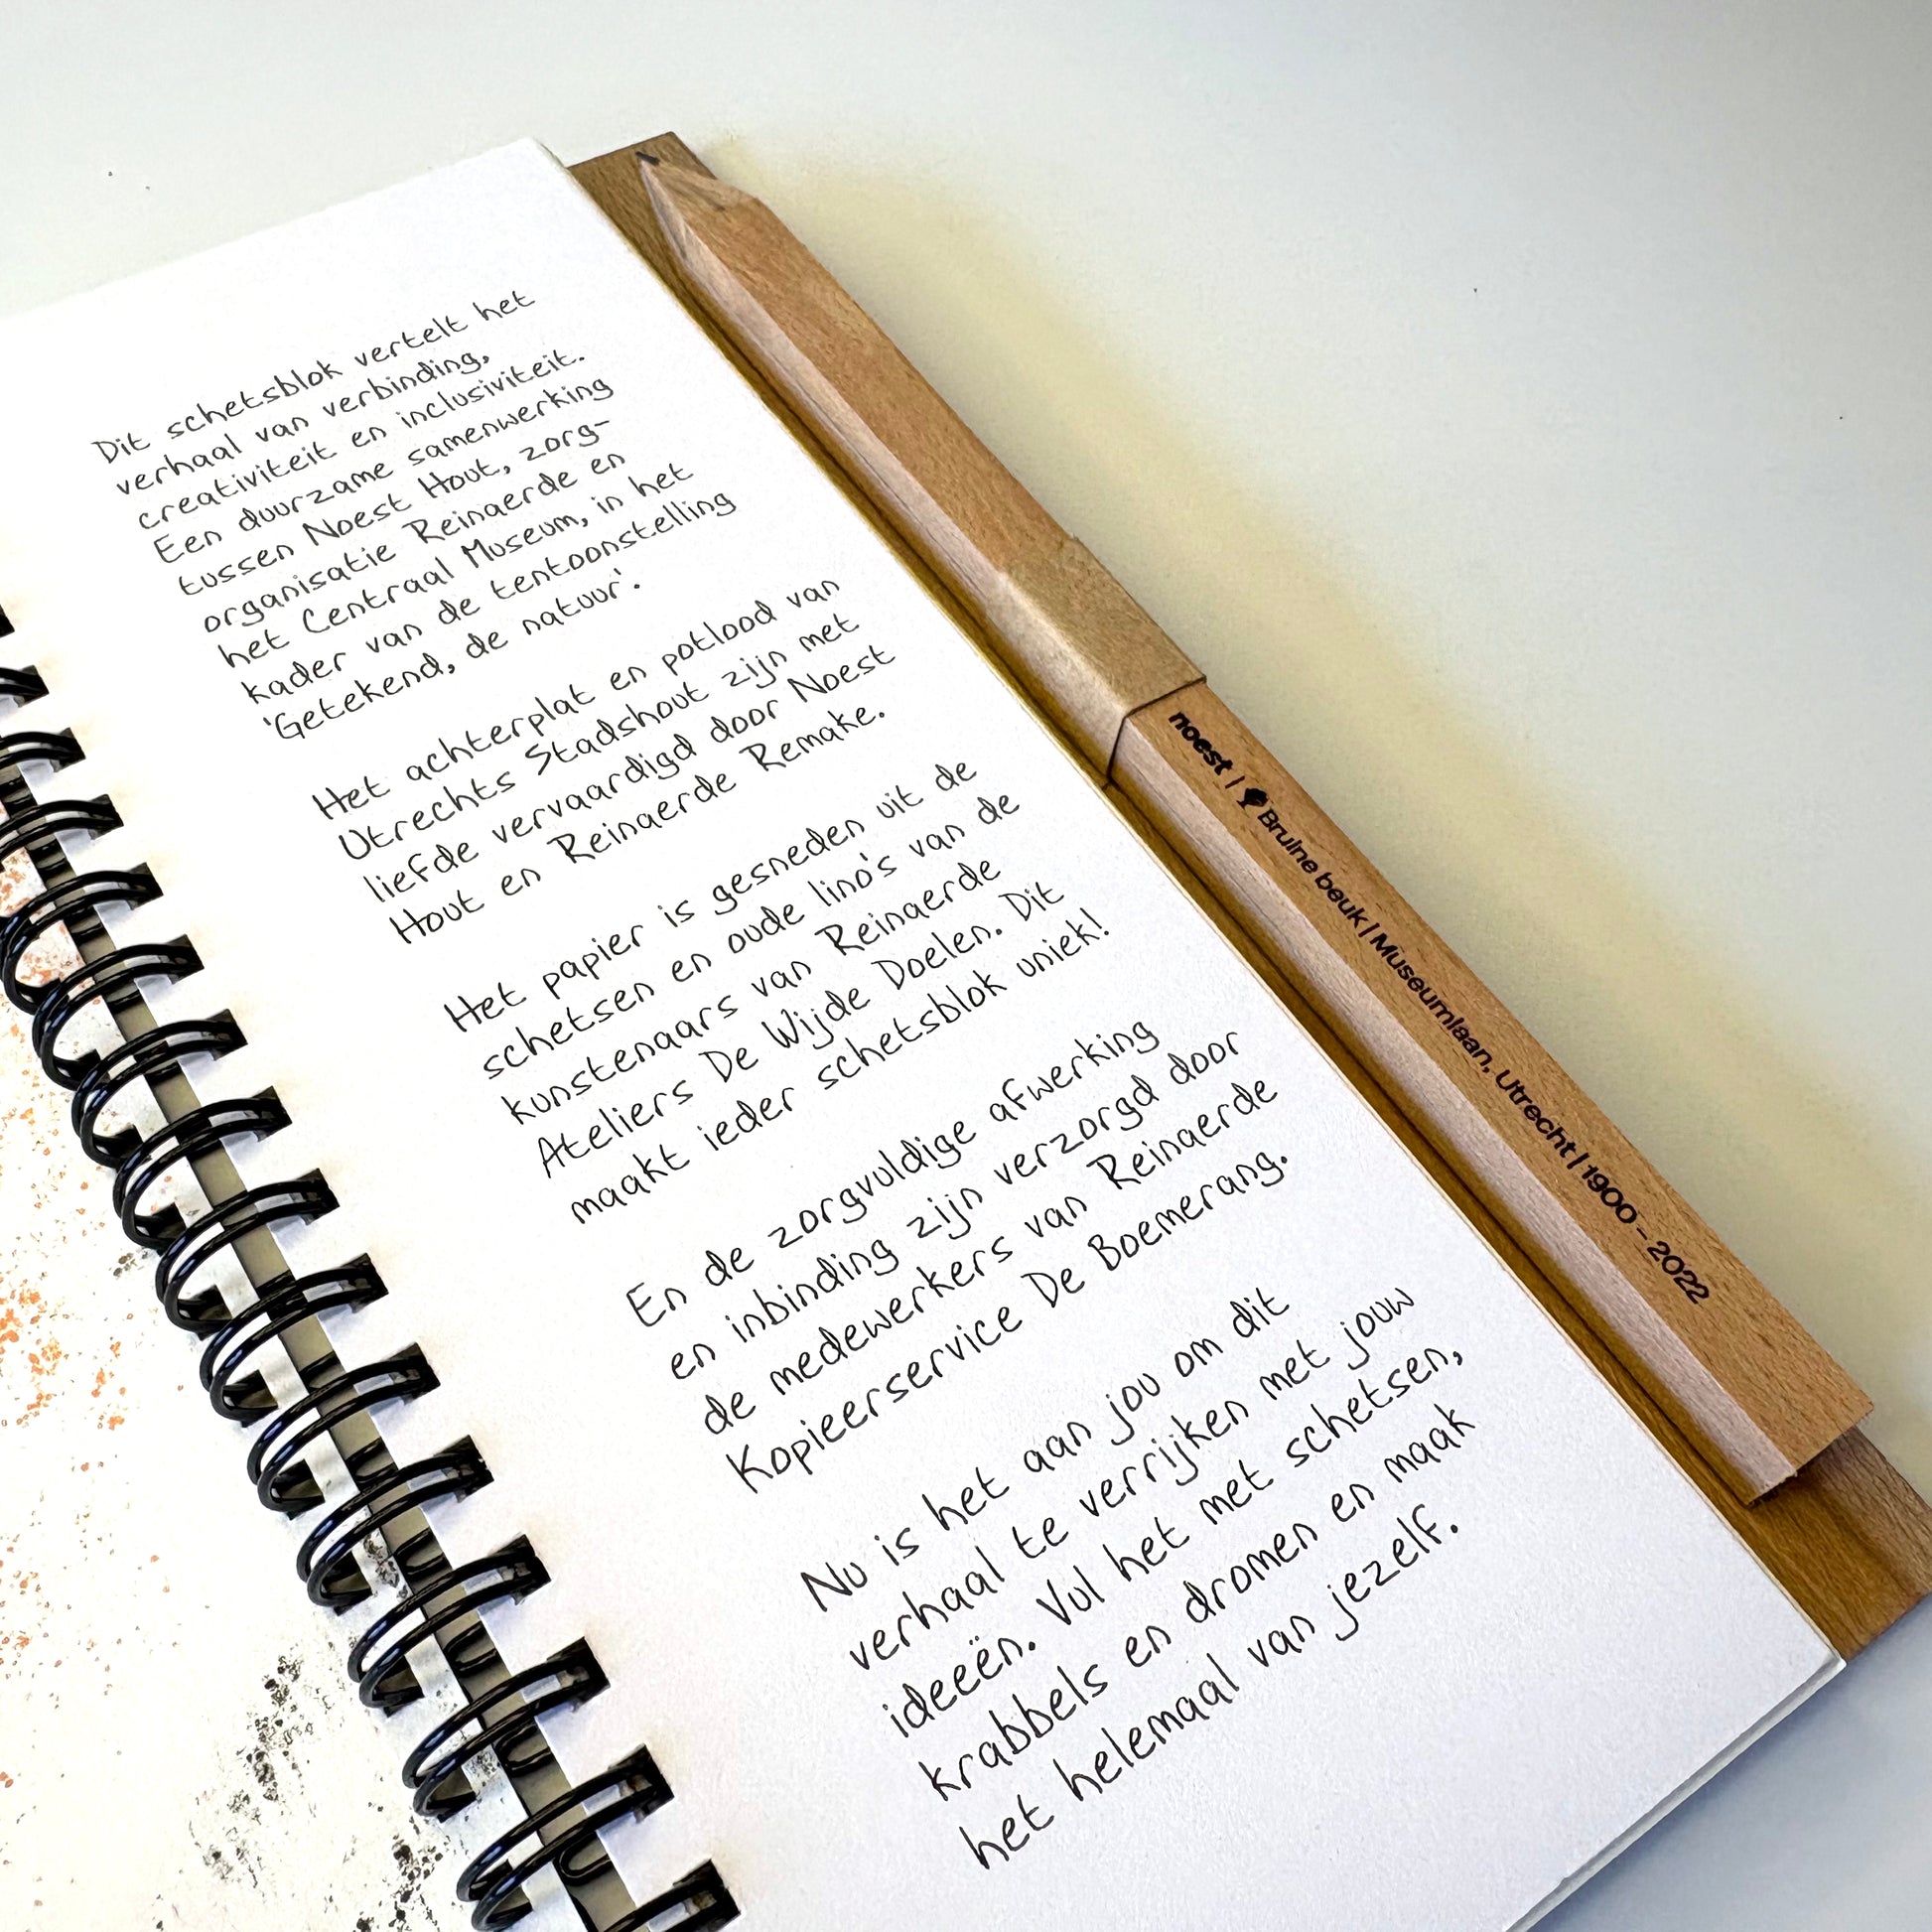 Dit schetsblok vertelt het
verhaal van verbinding,
creativiteit en inclusiviteit.
Een duurzame samenwerking
tussen Noest Hout, zorg-
organisatie Reinaerde en
het Centraal Museum, in het
kader van de tentoonstelling
'Getekend, de natuur'.
Het achterplat en potlood van
Utrechts Stadshout zijn met
liefde vervaardigd door Noest
Hout en Reinaerde Remake.
Het papier is gesneden uit de
schetsen en oude lino's van de
kunstenaars van Reinaerde
Ateliers De Wijde Doelen. Dit
maakt ieder schetsblok uniek!
En de zorgvuldige afwerking
en inbinding zijn verzorgd door
de medewerkers van Reinaerde
Kopieerservice De Boemerang.
Nu is het aan jou om dit
verhaal te verrijken met jouw
ideeën. Vul het met schetsen,
krabbels en dromen en maak
het helemaal van jezelf.
noest | Bruine beuk | Museumlaan, Utrecht | 1900 - 2022